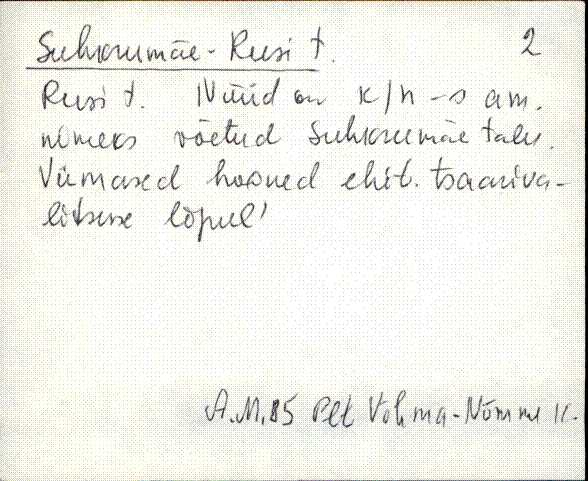 Suhkrumäe-Rusi t. 2
Rusi t. Nüüd on k/n-s am.
nimeks võetud Suhkrumäe talu.
Viimased hooned ehit. tsaariva-
litsuse lõpul'
A.M.85 Plt Võhma-Nõmme k.